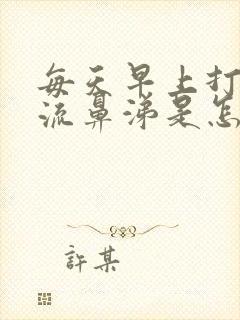 每天早上打
流鼻涕是怎
許某